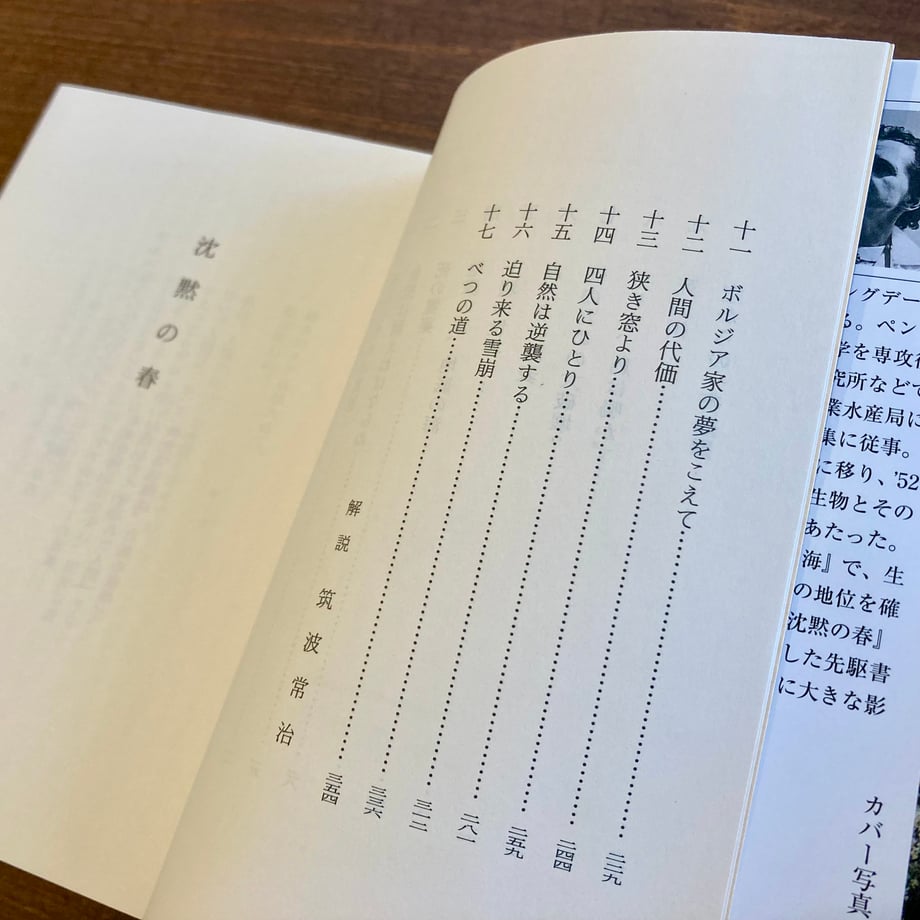 ングデー
る。ペン
学を専攻後
究所などで
業水産局に
集に従事。
に移り、'52
生物とその
あたった。
海』で、生
の地位を確
沈黙の春』
した先駆書
に大きな影
カバー写真、
十一 ボルジア家の夢をこえて……………二二九
十二 人間の代価……………二四四
十三 狭き窓より……………二五九
十四 四人にひとり……………二八一
十五 自然は逆襲する……………三一二
十六 迫り来る雪崩……………三三六
十七 べつの道……………三五四
解説 筑波常治
沈黙の春